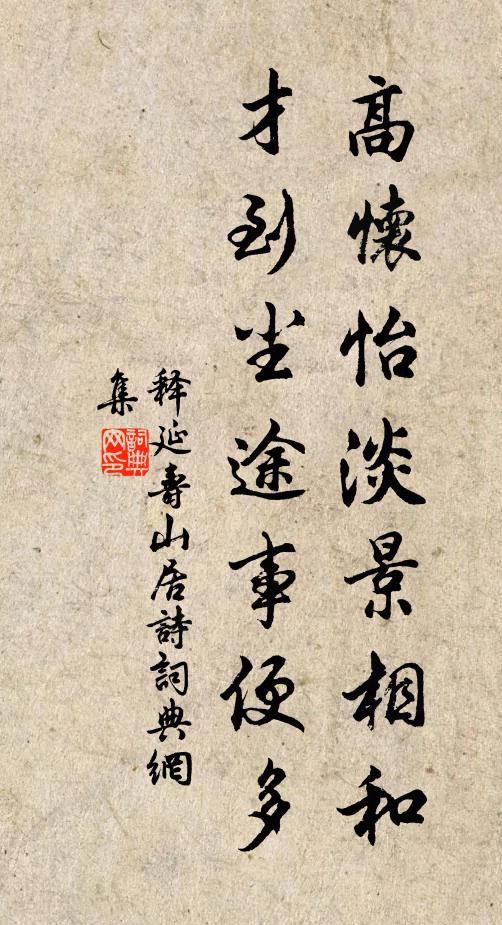 高懷怡淡景相和
才到尘途事便多
释延壽山居詩詞典網
集
詞典
网印